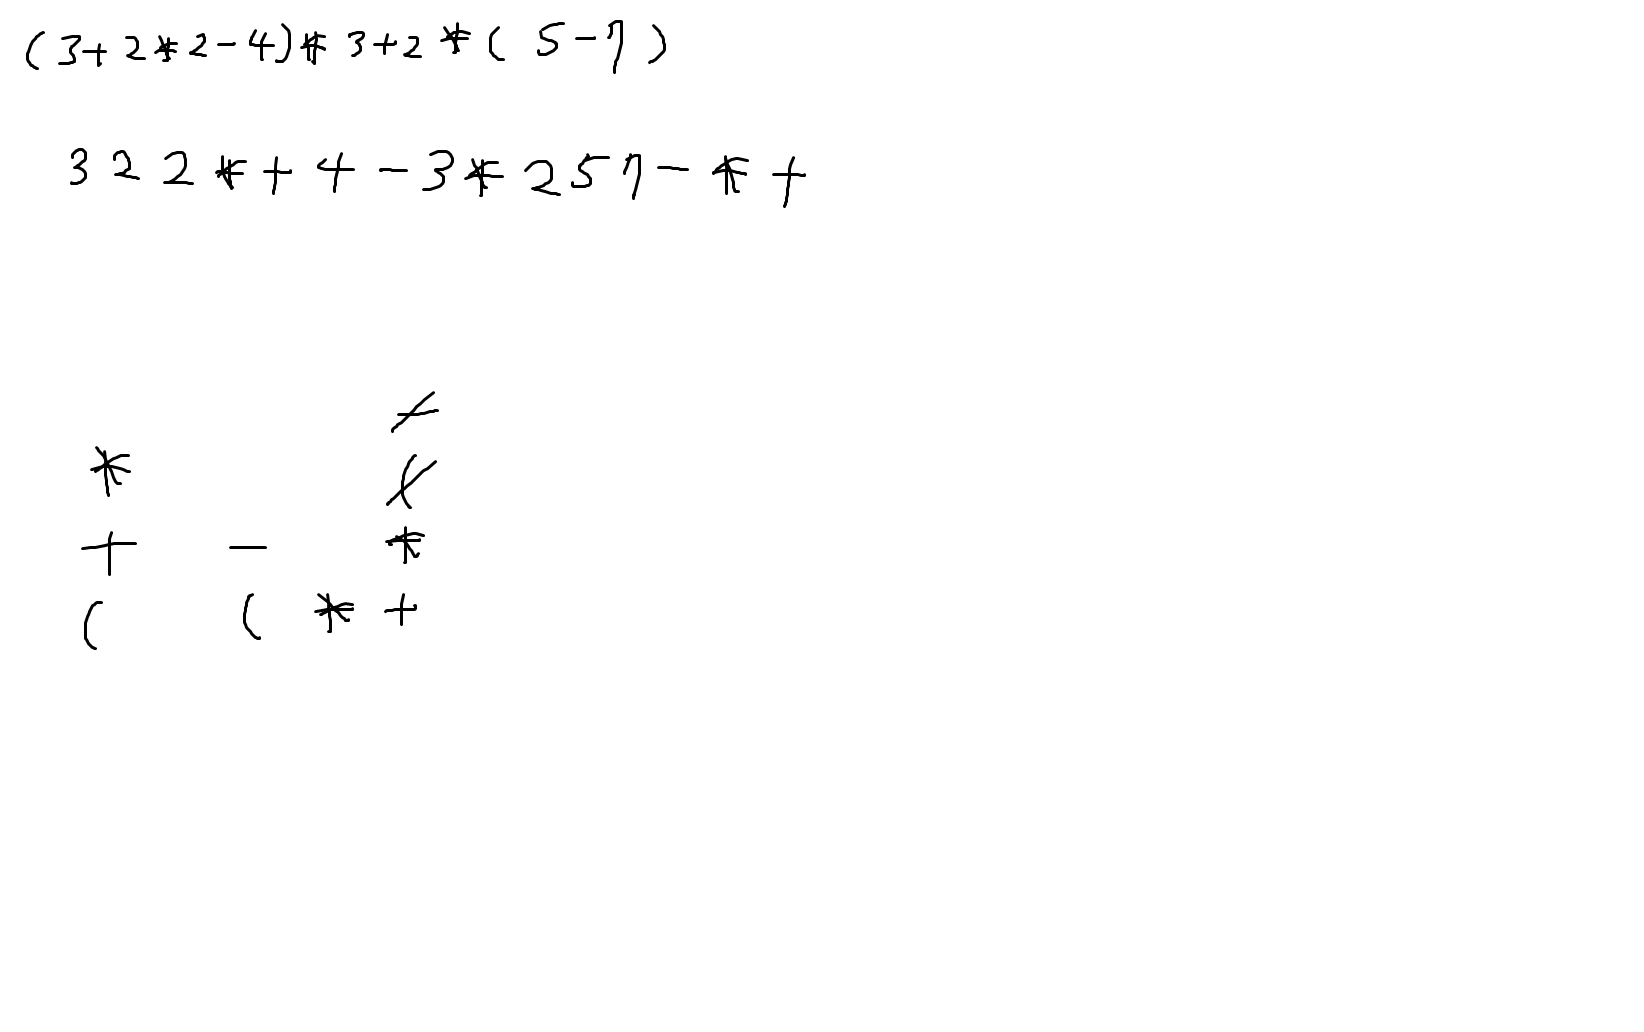 (3+2*2-4)*3+2*(5-7)
322*+4-3*257-*+
-
* (
+ - *
( ( * +